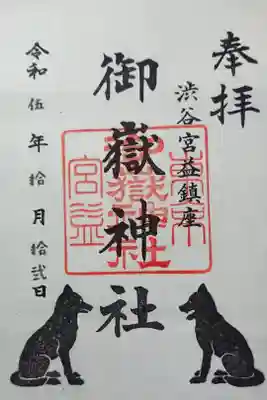 奉拝
渋谷宮益鎮座
御嶽神社
東京
御嶽神社
宮益
令和伍年拾月拾弐日